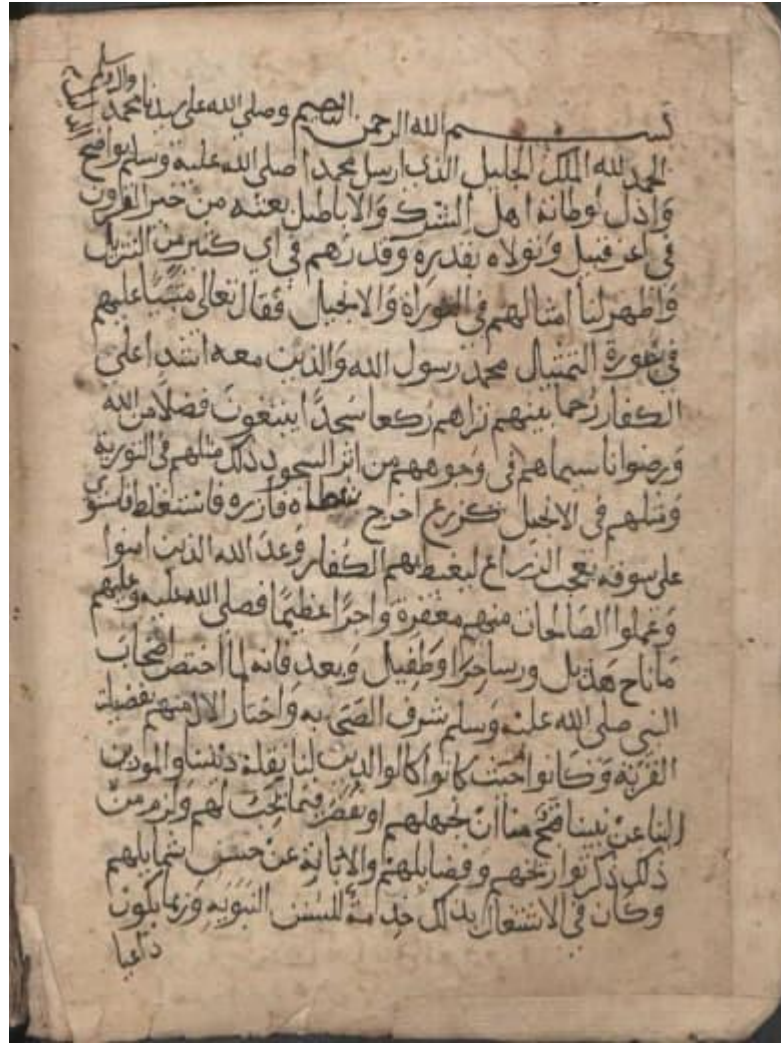 بسم الله الرحمن الرحيم وصلى الله على سيدنا محمد واله وسلم
الحمد لله الملك الجليل الذي ارسل محمدا صلى الله عليه وسلم بواضح
واذل اهل الشرك والاباطيل بعثه من خير القرون
في اعز قبيل وتولاه بقدره وقدرهم في اي كثير من التنزيل
واظهر لنا امثالهم في التوراة والانجيل فقال تعالى مثنيا عليهم
في التمثيال محمد رسول الله والذين معه اشداء على
الكفار رحما بينهم تراهم ركعا سجدا يبتغون فضلا من الله
ورضوانا سيماهم في وجوههم من اثر السجود ذلك مثلهم في التورية
ومثلهم في الانجيل كزرع اخرج شطاه فازره فاستغلظ فاستوي
على سوقه يعجب الزراع ليغيظ بهم الكفار وعد الله الذين امنوا
وعملوا الصالحات منهم مغفرة واجرا عظيما فصلى الله عليه وعليهم
ما ناح هديل ورسا حرا وطفيل وبعد فانه لما اختص اصحاب
النبي صلى الله عليه وسلم شرف الصحبة به واختار الال منهم بفضيلة
القربة وكانوا حيث كانوا كالوالدين لنا بنقله ديننا والمودين
الينا عن نبينا قبح منا ان نجهلهم او نقصر فيما يجب لهم ولزم من
ذلك ذكر تواريخهم وفضايلهم والابانة عن حسن شمايلهم
وكان في الاشتغال بذلك خدمة للسنن النبوية وربما يكون
داعيا